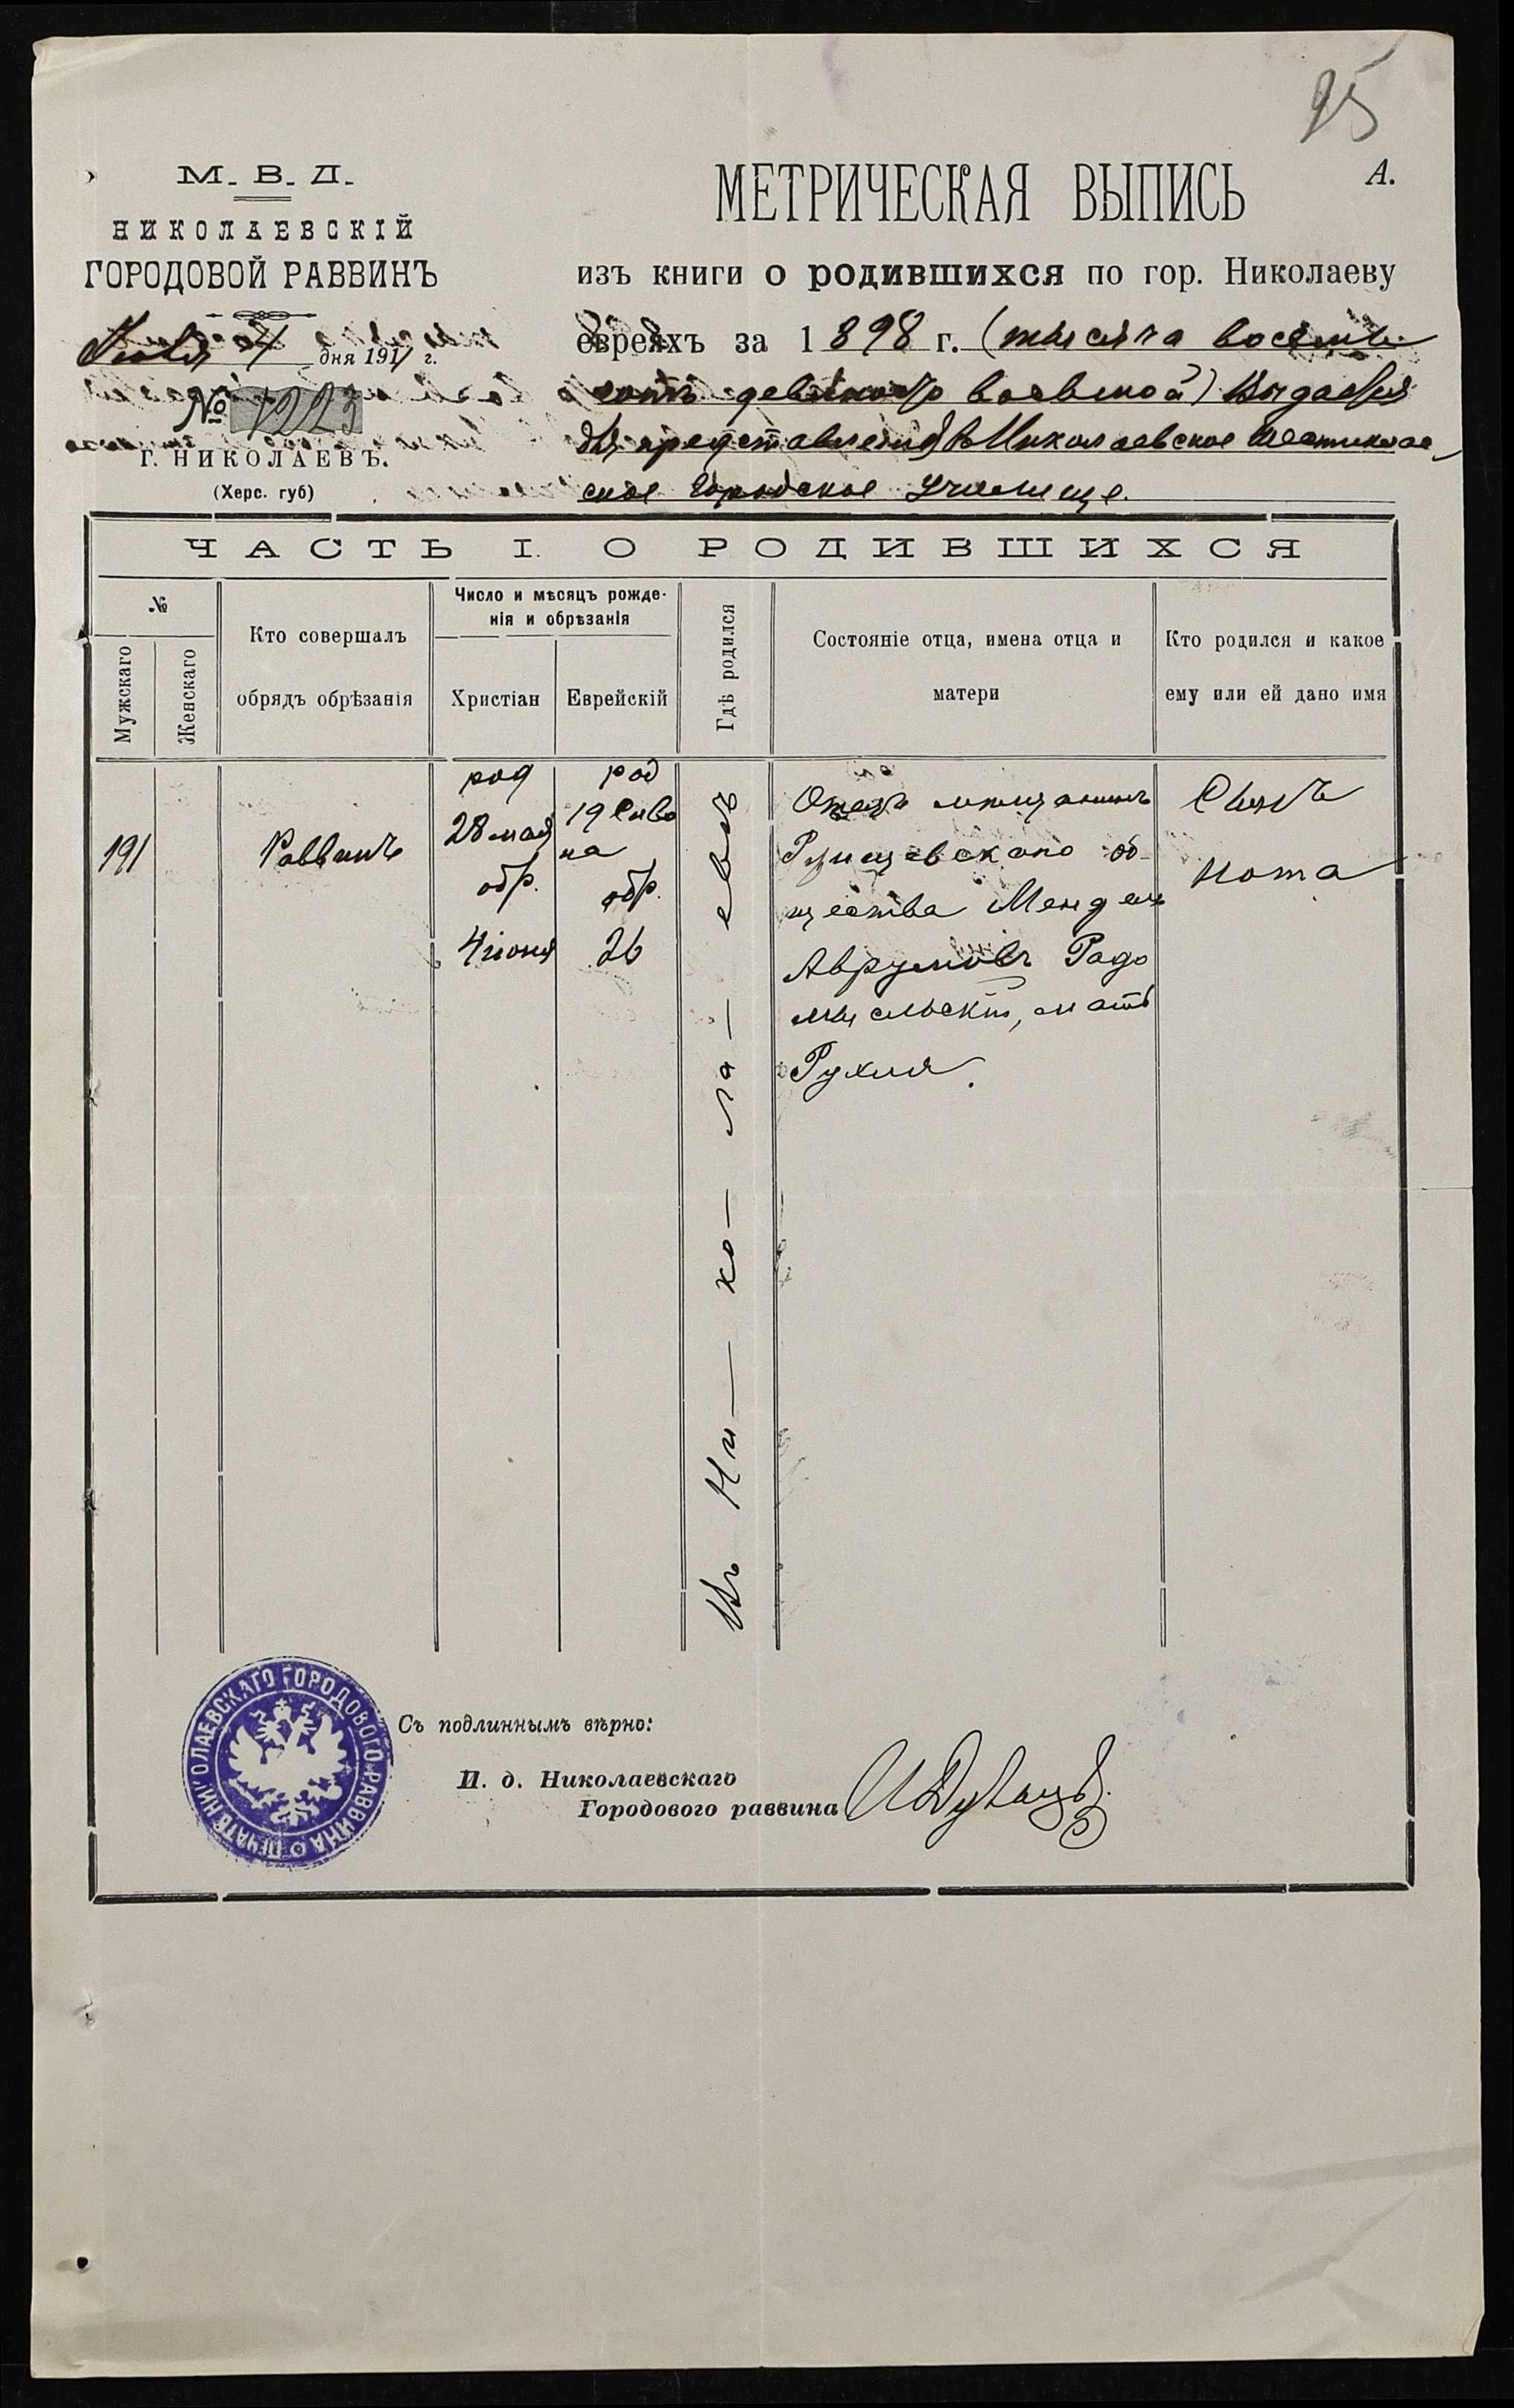 95
А.
М. В. Д.
НИКОЛАЕВСКІЙ
ГОРОДОВОЙ РАВВИНЪ
4 дня 1911 г.
№ 1223
Г. НИКОЛАЕВЪ.
(Херс. губ)
МЕТРИЧЕСКАЯ ВЫПИСЬ
изъ книги о родившихся по гор. Николаеву
евреяхъ за 1898 г. (тысяча восемь
сотъ девяносто восьмой) Выдается
для представленія въ Николаевское шестиклас
ское Городское училище.
ЧАСТЬ I. О РОДИВШИХСЯ
№
Мужскаго
Женскаго
Кто совершалъ
обрядъ обрѣзанія
Число и мѣсяцъ рожде-
нія и обрѣзанія
Христіан
Еврейскій
Гдѣ родился
Состояніе отца, имена отца и
матери
Кто родился и какое
ему или ей дано имя
191
Раввинъ
род
28 мая
обр.
4 іюня
род
19 Сиво
на
обр.
26
Въ Ни- ко- ла- евѣ
Отецъ мѣщанинъ
Ржищевскаго об-
щества Мендель
Аврумовъ Радо
мысльскій, мать
Рухля.
Сынъ
Нота
Съ подлиннымъ вѣрно:
И. д. Николаевскаго
Городового раввина
ПЕЧАТЬ НИКОЛАЕВСКАГО ГОРОДОВОГО РАВВИНА